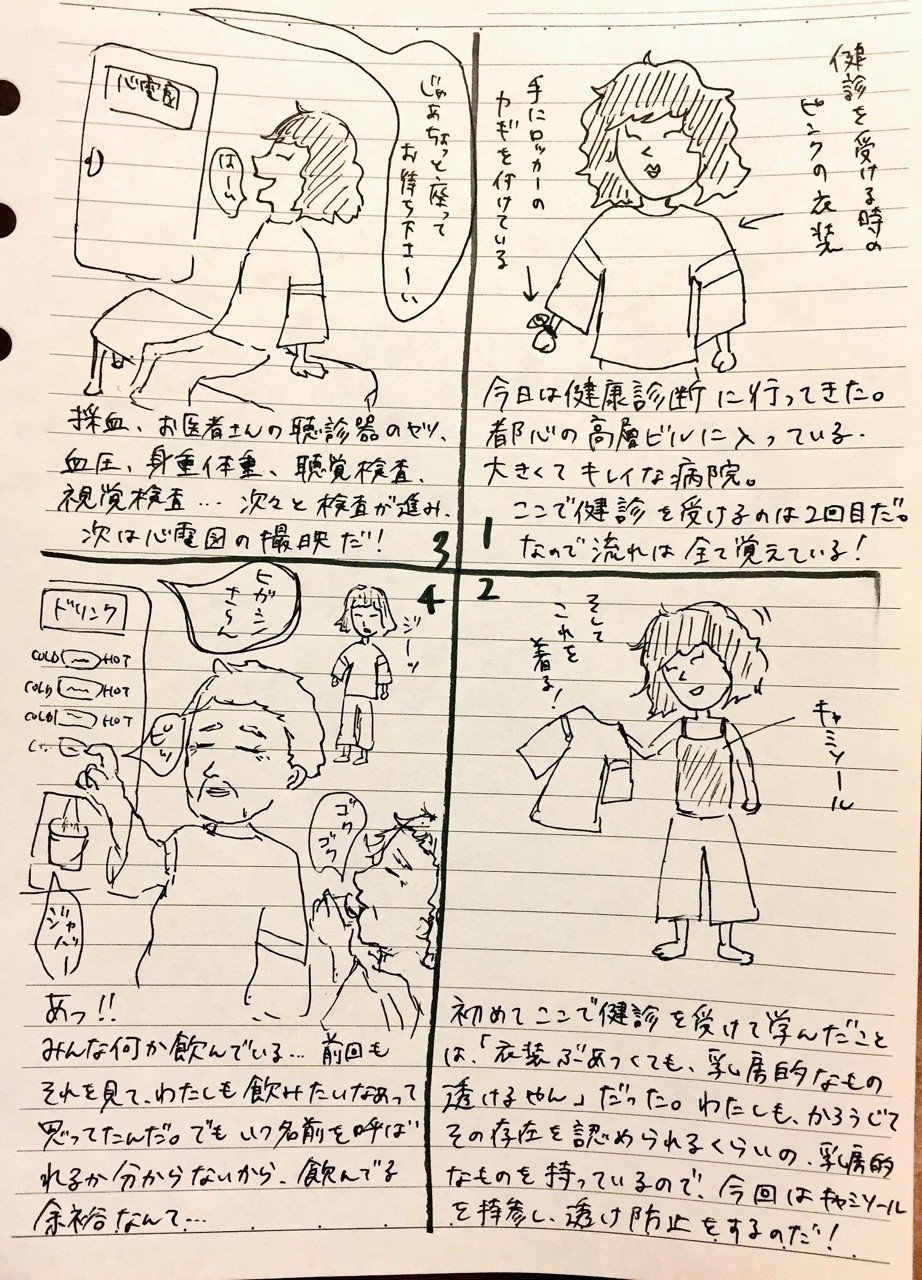 健診を受ける時の
ピンクの衣装
手にロッカーの
カギを付けている
今日は健康診断に行ってきた。
都心の高層ビルに入っている
大きくてキレイな病院。
ここで健診を受けるのは2回目だ。
なので流れは全て覚えている!
1
2
そして
これを
着る!
キャミソール
初めてここで健診を受けて学んだこと
は、「衣装ぶあつくても、乳房的なもの
透けるやん」だった。わたしも、かろうじて
その存在を認められるくらいの、乳房的
なものを持っているので、今回はキャミソール
を持参し、透け防止をするのだ!
じゃあちょっと座って
お待ち下さ〜い
心電図
はーい
採血、お医者さんの聴診器のヤツ、
血圧、身重体重、聴覚検査、
視覚検査…次々と検査が進み、
次は心電図の撮映だ!
3
4
ヒガシン
さ〜ん
ジーッ
ドリンク
COLD HOT
COLD HOT
COLD HOT
ピッ
ゴク
ゴク
ジャバー
あっ!!
みんな何か飲んでいる…前回も
それを見て、わたしも飲みたいなあって
思ってたんだ。でもいつ名前を呼ば
れるか分からないから、飲んでる
余裕なんて…